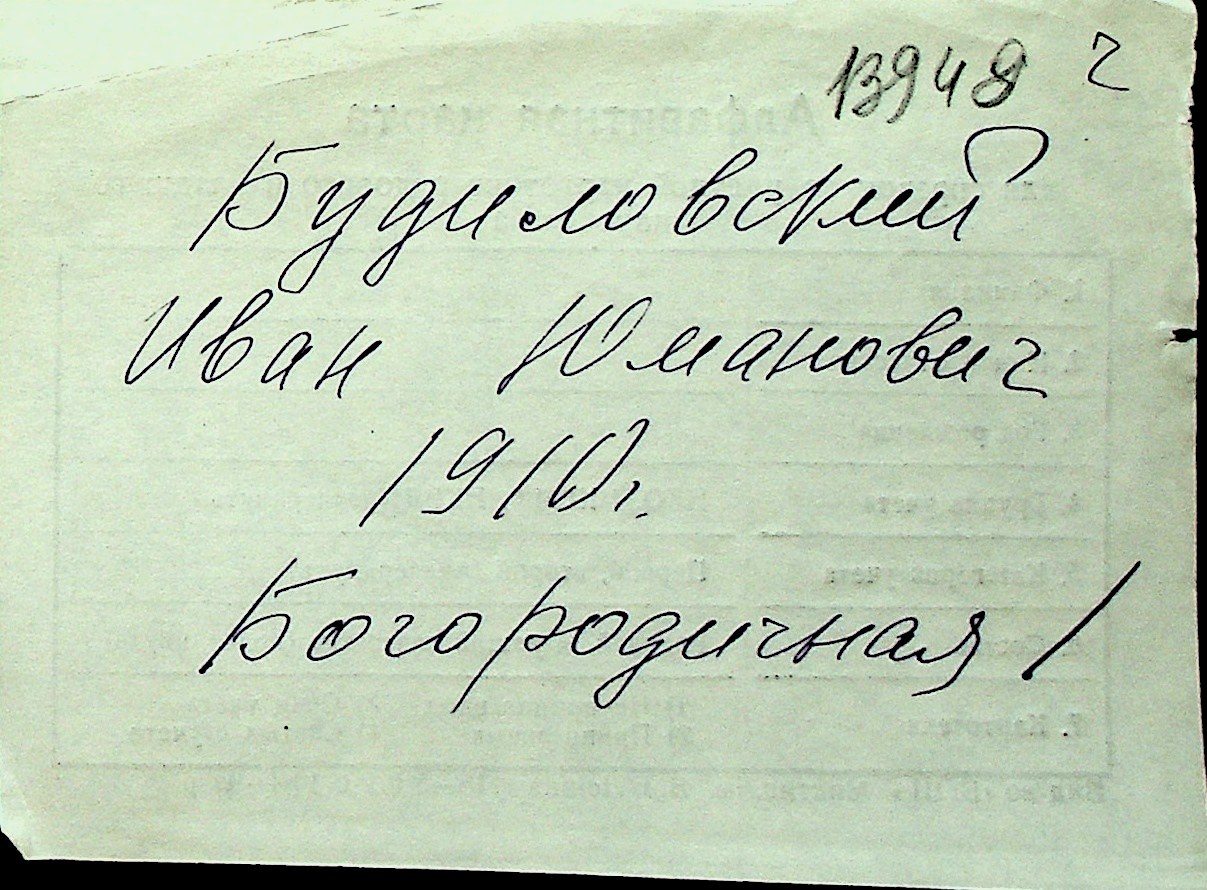 13948 г
Будиловский
Иван Юманович
1910г.
Богородичная 1